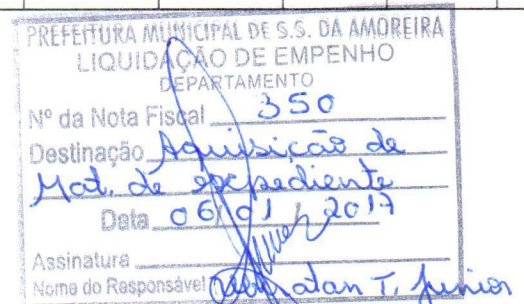 PREFEITURA MUNICIPAL DE S.S. DA AMOREIRA
LIQUIDAÇÃO DE EMPENHO
DEPARTAMENTO
Nº da Nota Fiscal 350
Destinação Aquisição de
Mat. de expediente
Data 06/01/2017
Assinatura
Nome do Responsável T. Junior